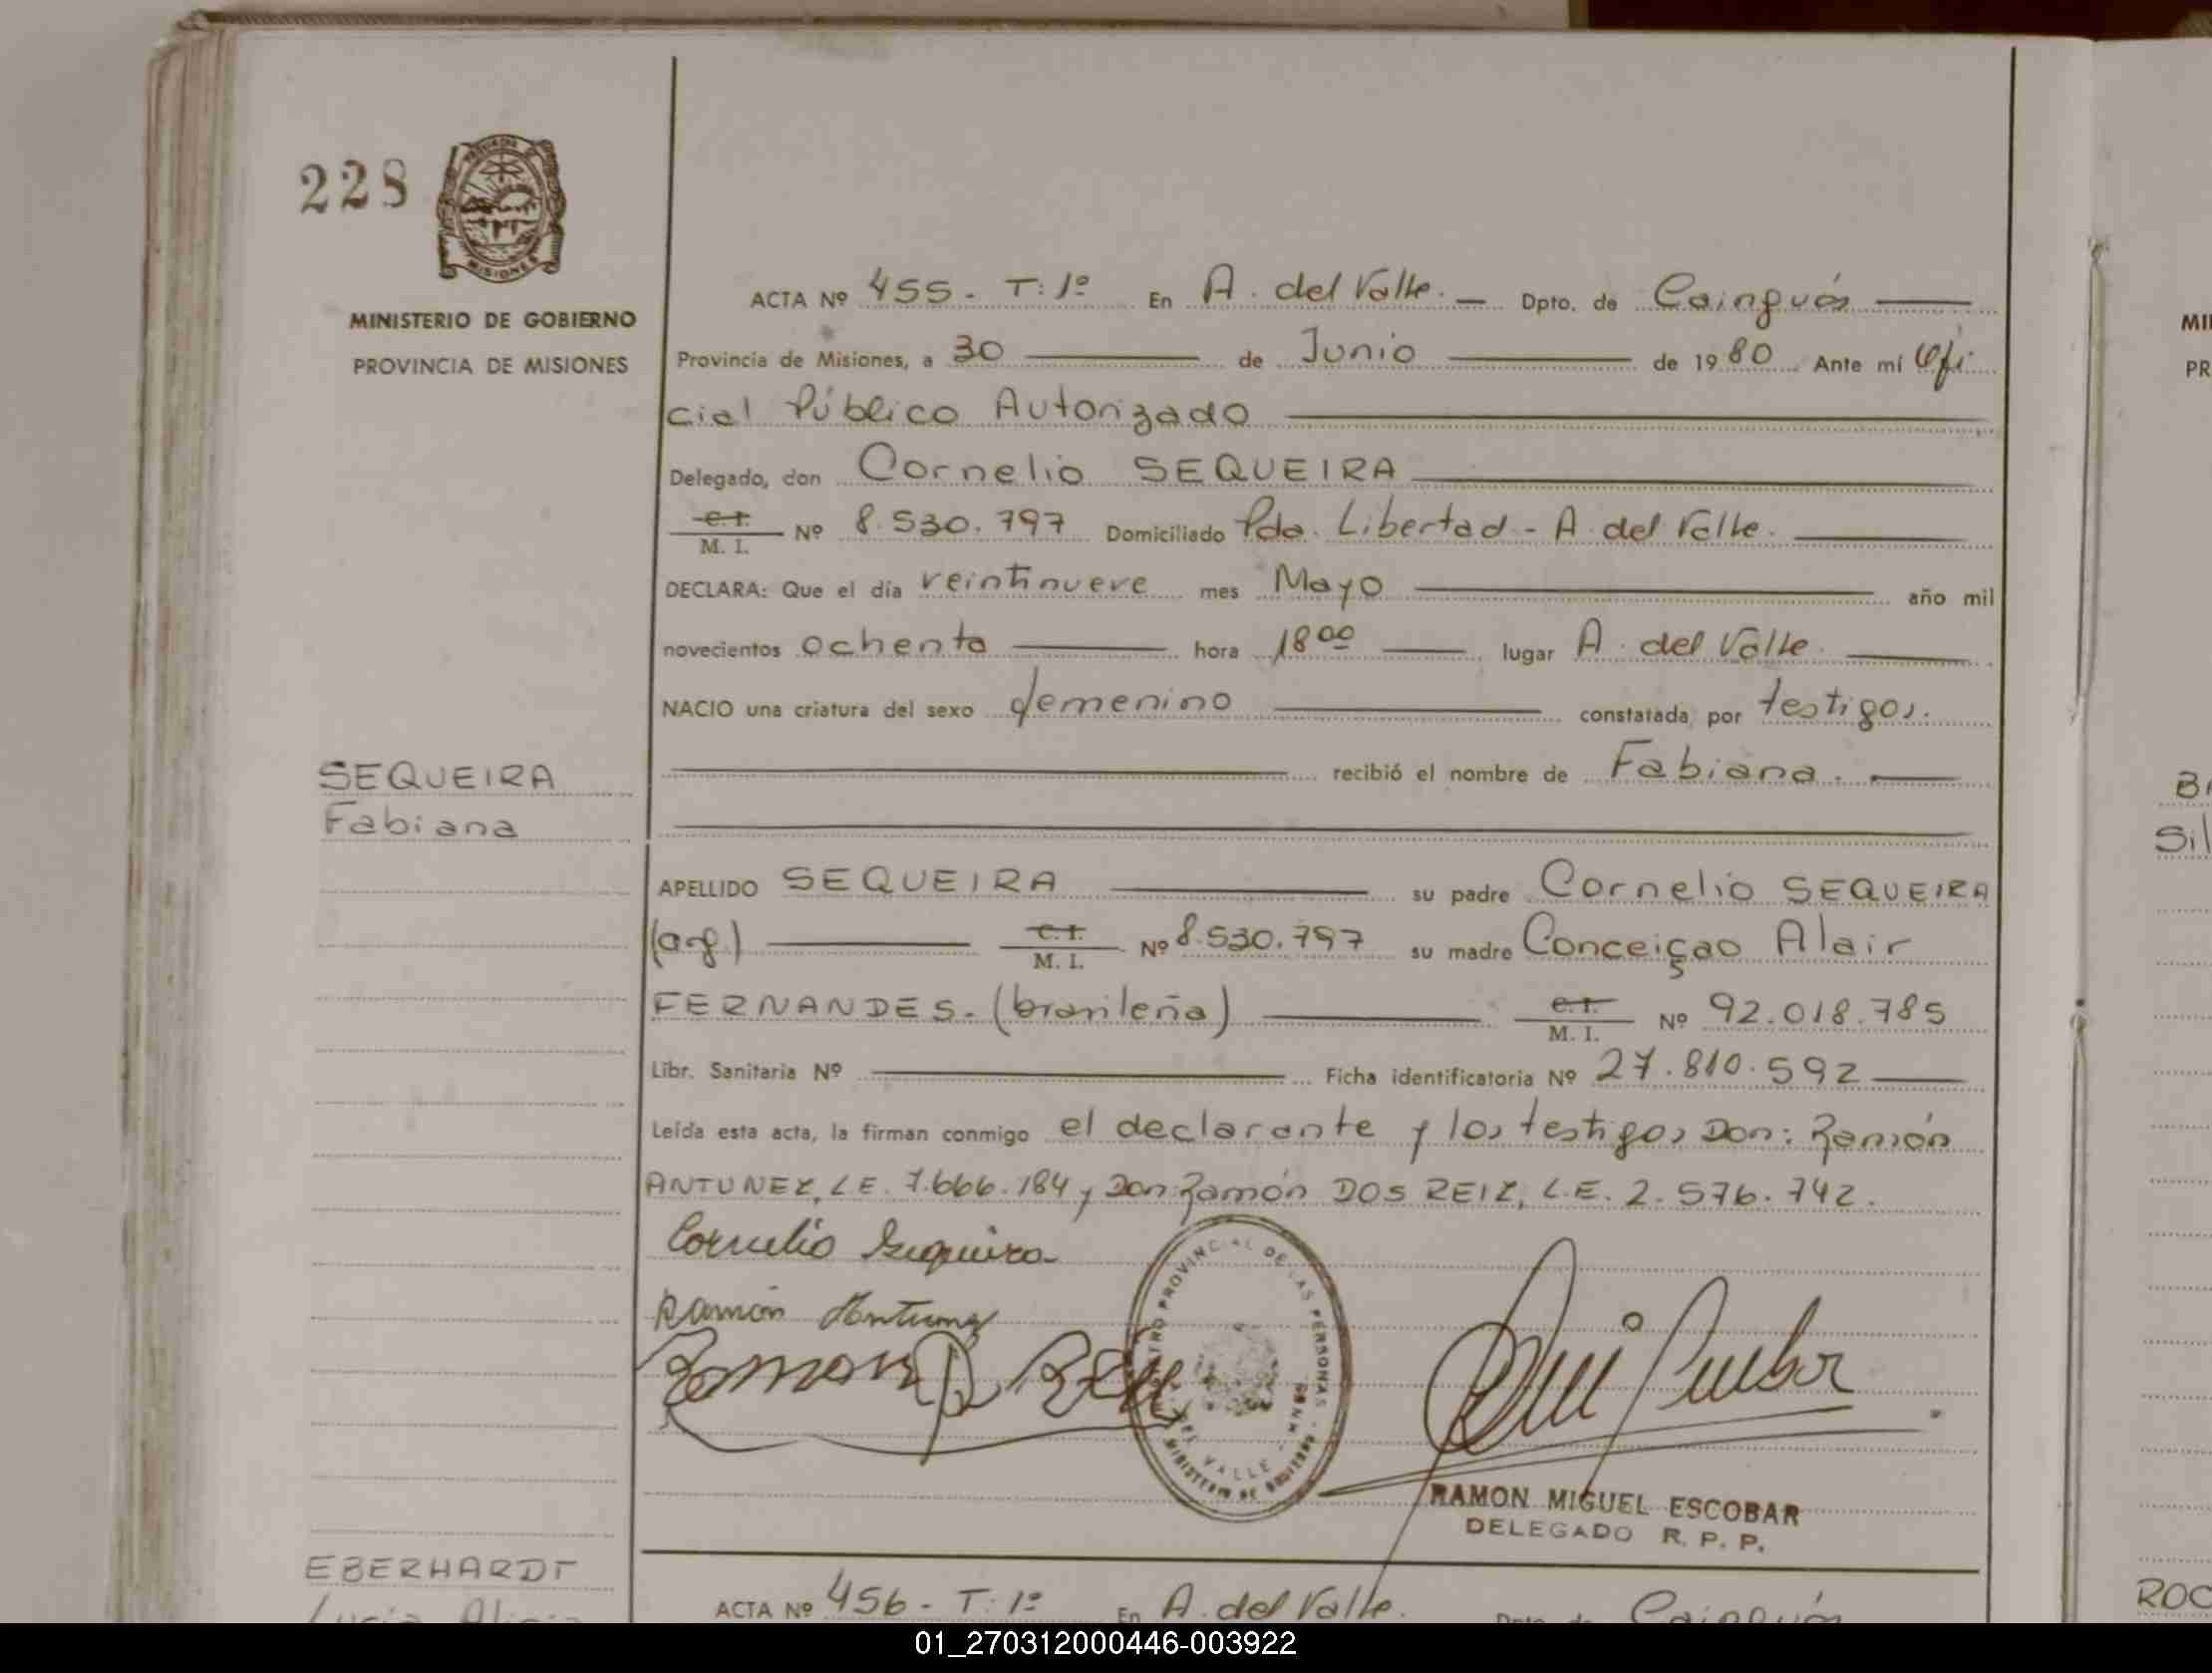 228
PROVINCIA DE
MISIONES
MINISTERIO DE GOBIERNO
PROVINCIA DE MISIONES
SEQUEIRA
Fabiana
ACTA Nº 455 - T: 1º En A. del Valle. Dpto. de Cainguás
Provincia de Misiones, a 30 de Junio de 1980 Ante mí Ofi
cial Público Autorizado
Delegado, don Cornelio SEQUEIRA
C.I. M. I. Nº 8.530.797 Domiciliado Pda. Libertad - A. del Valle.
DECLARA: Que el día veintinueve mes Mayo año mil
novecientos ochenta hora 18 00 lugar A. del Valle.
NACIO una criatura del sexo femenino constatada por testigos.
recibió el nombre de Fabiana.
APELLIDO SEQUEIRA su padre Cornelio SEQUEIRA
(arg.) C.I. M. I. Nº 8.530.797 su madre Conceiçao Alair
FERNANDES. (brasileña) C.I. M. I. Nº 92.018.785
Libr. Sanitaria Nº Ficha identificatoria Nº 27.810.592
Leída esta acta, la firman conmigo el declarante y los testigos Don: Ramón
ANTUNEZ, L.E. 7.666.184 y Don Ramón DOS REIZ, L.E. 2.576.742.
Cornelio Sequeira
Ramón Antunez
PROVINCIAL DE LAS PERSONAS
DEL VALLE
MINISTERIO DE GOBIERNO
RAMON MIGUEL ESCOBAR
DELEGADO R. P. P.
EBERHARDT
ACTA Nº 456 - T: 1º En A. del Valle. Dpto. de Cainguás
MI
PR
BA
Sil
ROC
01_270312000446-003922